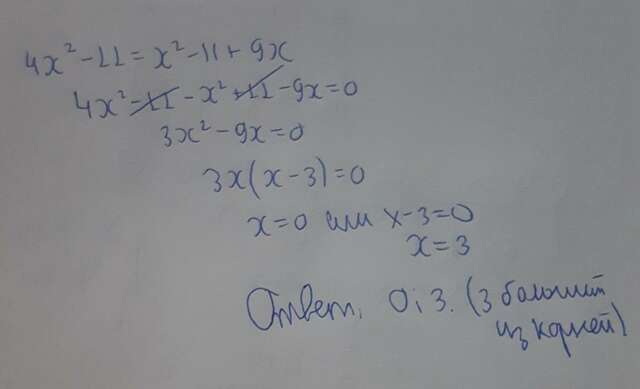 4x² - 11 = x² - 11 + 9x
4x² - 11 - x² + 11 - 9x = 0
3x² - 9x = 0
3x(x - 3) = 0
x = 0 или x - 3 = 0
x = 3
Ответ: 0; 3. (3 больший
из корней)